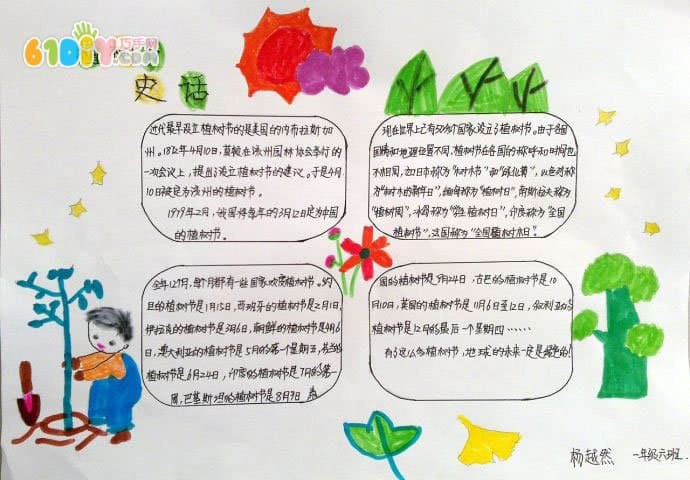 61DIY巧手网
.com
史话
近代最早设立植树节的是美国的内布拉斯加
州。1872年4月10日,莫顿在该州园林协会举行的
一次会议上,提出了设立植树节的建议。于是4月
10日被定为该州的植树节。
1979年2月,我国将每年的3月12日定为中国
的植树节。
现在世界上已有50多个国家设立了植树节。由于各国
国情和地理位置不同,植树节在各国的称呼和时间也
不相同,如日本称为“树木节”和“绿化周”,以色列称
为“树木的新年日”,缅甸称为“植树日”,南斯拉夫称为
“植树周”,冰岛称为“学生植树日”,印度称为“全国
植树节”,法国称为“全国植树日”。
全年12个月,每个月都有一些国家欢度植树节。约
旦的植树节是1月15日,西班牙的植树节是2月1日,
伊拉克的植树节是3月6日,朝鲜的植树节是4月6
日,澳大利亚的植树节是5月的第一个星期五,芬兰的
植树节是6月24日,印度的植树节是7月的第一
周,巴基斯坦的植树节是8月9日 泰
国的植树节是9月24日,古巴的植树节是10
月10日,英国的植树节是11月6日至12日,叙利亚的
植树节是12月的最后一个星期四……
有了这么多植树节,地球的未来一定是绿色的!
杨越然 一年级六班.